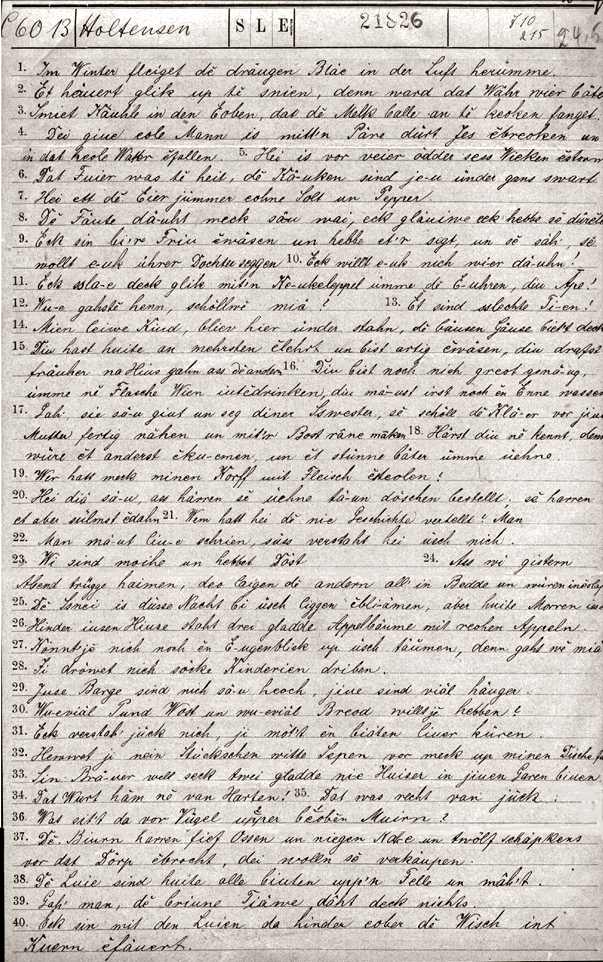 C 60 13 Holtensen S L E 21826
1. Im Winter fleiget dĕ dräugen Blăe in der Luft herümme.
2. Et häuert glik up tĕ snien, denn ward dat Währ wier Bäter
3. Smiet Käuhle in den Eoben, dat dĕ Melk balle an tĕ keoken fanget.
4. Dei giue eole Mann is mitten Päre dürt Jes ĕbreoken un
in dat keole Water ĕfallen. 5. Hei is vor veier ödder sess Wieken ĕstorwen
6. Dat Fuier was tĕ heit, dĕ Kä-uken sind je-u ünder gens swart
7. Hei ett dĕ Eier jümmer eohne Solt un Pepper.
8. Dĕ Fäute dä-uht meck säu wai, eck gläuwe eck hebbe sĕ
9. Eck sin bi'r Fru ĕwäsen un hebbe et'r segt, un sĕ säh, sĕ
wollt e-uk ührer Dochter seggen 10. Eck willt e-uk nich wier dä-uhn!
11. Eck sla-e deck glik mit'n Ke-ukeleppel ümme dĕ E-uhren, diu Ape!
12. Wu-e gahstĕ henn, schöllwĕ miä! 13. Et sind slechte Ti-en!
14. Mien leiwe Kind, bliev hier ünder stahn, dĕ bäusen Gäuse biett deck
15. Diu hast huite an mehrsten ĕlehrt un bist artig ĕwäsen, diu drafst
fräuher na Hius gahn ass dĕ andern 16. Diu bist noch nich greot genä-ug,
ümme nĕ Flasche Wien iutĕdrinken, diu mä-ust irst noch ĕn Enne wassen
17. Gah, sie sä-u giut un seg diner Swester, sĕ schöll dĕ Klä-er vor jiue
Mutter fertig nähen un mit'r Bost räne maken 18. Härst diu nĕ kennt, denn
würe ĕt anderst ĕku-emen, un ĕt stünne bäter ümme üehne
19. Wer hatt meck minen Korff mit Fleisch ĕsteolen!
20. Hei diä sä-u, ass härren sĕ üehne tä-un döschen bestellt; sĕ harren
et aber sülmst ĕdahn 21. Wem hatt hei dĕ nie Geschichte vertellt? Man
22. Man mä-ut liu-e schrien, süss versteht hei üsch nich.
23. Wi sind moihe un hebbet Döst 24. Ass wi gistern
Abend trügge kaimen, deo laigen dĕ andern all in Bedde un würen
25. Dĕ Snei is düsse Nacht bi üsch liggen ĕbli-ämen, aber huite Morren
26. Hinder iusen Hiuse staht drei gladde Appelbäume mit reohen Appeln.
27. Könnt jĕ nich noch ĕn E-ugenblick up üsch täumen, denn gaht wĕ miä
28. Ji dröwet nich söcke Kinderien driben.
29. Iuse Barge sind nich sä-u heoch, jiue sind viäl häuger.
30. Wu-eviäl Pund Wost un wu-eviäl Breod willt jĕ hebben?
31. Eck verstah' jück nich, ji möt'n ĕn biäten liuer küren.
32. Hennet jĕ nein Stückschen witte Sepen vor meck up minen Tische
33. Sin Brä-uer well seck twei gladde nie Huiser in jiuen Garen biuen
34. Dat Wurt käm nĕ van Harten! 35. Dat was recht van jück!
36. Was sitt da vor Vügel upper Eeoben Muirn?
37. Dĕ Biurn harren fief Ossen un niegen un twölf schäpkens
vor dat Dörp ĕbrocht, dei wolln sĕ verkaupen.
38. Dĕ Luie sind huite alle biuten upp'n Felle un mäh't.
39. Gah' man, dĕ briune Tiäwe däht deck nichts
40. Eck sin mit den Luien da hinder eober dĕ Wisch int
Kuern ĕfäuert.